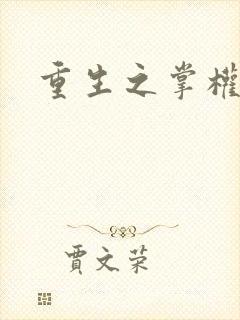 重生之掌權
賈文荣